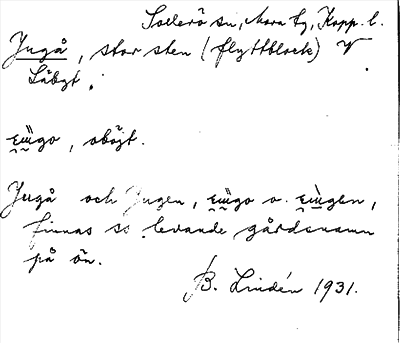 Sollerö sn, Mora tg, Kopp. l.
Jugå, stor sten (flyttblock) V
Läbgt.
, oböjt.
Jugå och Jugen,
finnas so levande gårdsnamn
på ön.
B. Lindén 1931.